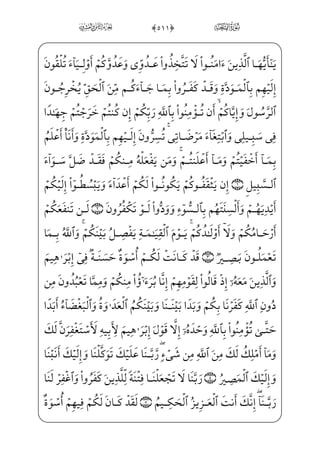 سورة الممتحنة ﴿٥١١﴾ الجزء الثامن والعشرون
يَـٰٓأَيُّهَا ٱلَّذِينَ ءَامَنُوا۟ لَا تَتَّخِذُوا۟ عَدُوِّى وَعَدُوَّكُمْ أَوْلِيَآءَ تُلْقُونَ
إِلَيْهِم بِٱلْمَوَدَّةِ وَقَدْ كَفَرُوا۟ بِمَا جَآءَكُم مِّنَ ٱلْحَقِّ يُخْرِجُونَ
ٱلرَّسُولَ وَإِيَّاكُمْ ۙ أَن تُؤْمِنُوا۟ بِٱللَّهِ رَبِّكُمْ إِن كُنتُمْ خَرَجْتُمْ جِهَـٰدًا
فِى سَبِيلِى وَٱبْتِغَآءَ مَرْضَاتِى ۚ تُسِرُّونَ إِلَيْهِم بِٱلْمَوَدَّةِ وَأَنَا۠ أَعْلَمُ
بِمَآ أَخْفَيْتُمْ وَمَآ أَعْلَنتُمْ ۚ وَمَن يَفْعَلْهُ مِنكُمْ فَقَدْ ضَلَّ سَوَآءَ
ٱلسَّبِيلِ ﴿١﴾ إِن يَثْقَفُوكُمْ يَكُونُوا۟ لَكُمْ أَعْدَآءً وَيَبْسُطُوٓا۟ إِلَيْكُمْ
أَيْدِيَهُمْ وَأَلْسِنَتَهُم بِٱلسُّوٓءِ وَوَدُّوا۟ لَوْ تَكْفُرُونَ ﴿٢﴾ لَن تَنفَعَكُمْ
أَرْحَامُكُمْ وَلَآ أَوْلَـٰدُكُمْ ۚ يَوْمَ ٱلْقِيَـٰمَةِ يَفْصِلُ بَيْنَكُمْ ۚ وَٱللَّهُ بِمَا
تَعْمَلُونَ بَصِيرٌ ﴿٣﴾ قَدْ كَانَتْ لَكُمْ أُسْوَةٌ حَسَنَةٌ فِىٓ إِبْرَٰهِيمَ
وَٱلَّذِينَ مَعَهُۥٓ إِذْ قَالُوا۟ لِقَوْمِهِمْ إِنَّا بُرَءَٰٓؤُا۟ مِنكُمْ وَمِمَّا تَعْبُدُونَ مِن
دُونِ ٱللَّهِ كَفَرْنَا بِكُمْ وَبَدَا بَيْنَنَا وَبَيْنَكُمُ ٱلْعَدَٰوَةُ وَٱلْبَغْضَآءُ أَبَدًا
حَتَّىٰ تُؤْمِنُوا۟ بِٱللَّهِ وَحْدَهُۥٓ إِلَّا قَوْلَ إِبْرَٰهِيمَ لِأَبِيهِ لَأَسْتَغْفِرَنَّ لَكَ
وَمَآ أَمْلِكُ لَكَ مِنَ ٱللَّهِ مِن شَىْءٍ ۖ رَّبَّنَا عَلَيْكَ تَوَكَّلْنَا وَإِلَيْكَ أَنَبْنَا
وَإِلَيْكَ ٱلْمَصِيرُ ﴿٤﴾ رَبَّنَا لَا تَجْعَلْنَا فِتْنَةً لِّلَّذِينَ كَفَرُوا۟ وَٱغْفِرْ لَنَا
رَبَّنَآ ۖ إِنَّكَ أَنتَ ٱلْعَزِيزُ ٱلْحَكِيمُ ﴿٥﴾ لَقَدْ كَانَ لَكُمْ فِيهِمْ أُسْوَةٌ